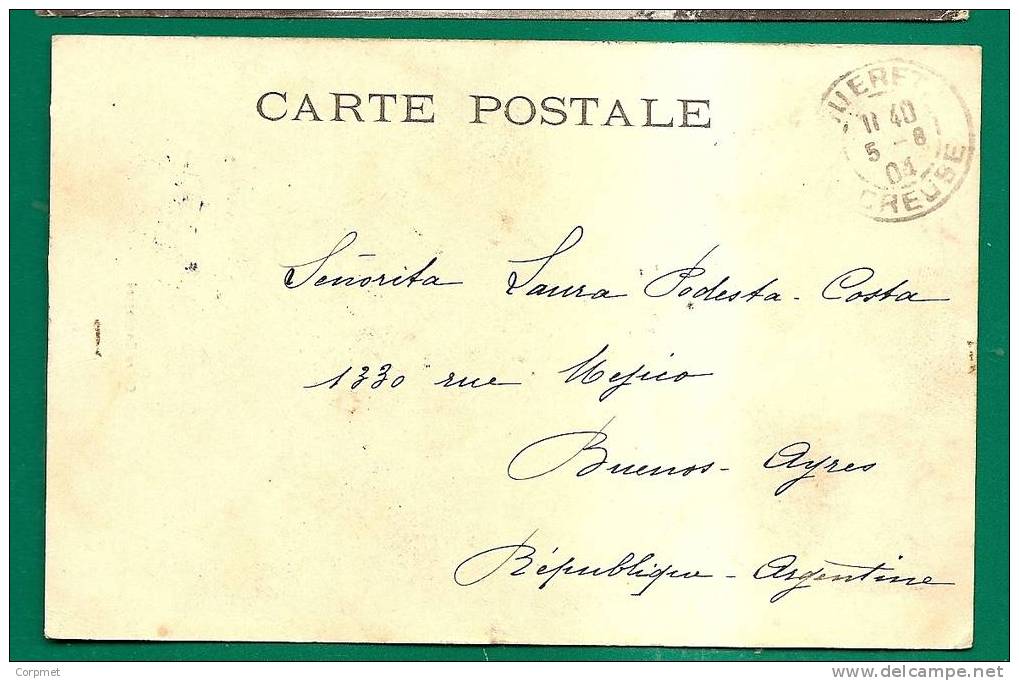 CARTE POSTALE
GUERET
11 40
5 - 8
04
CREUSE
Señorita Laura Podesta - Costa
1330 rue Mejico
Buenos - Ayres
République - Argentine
Corpmet
www.delcampe.net